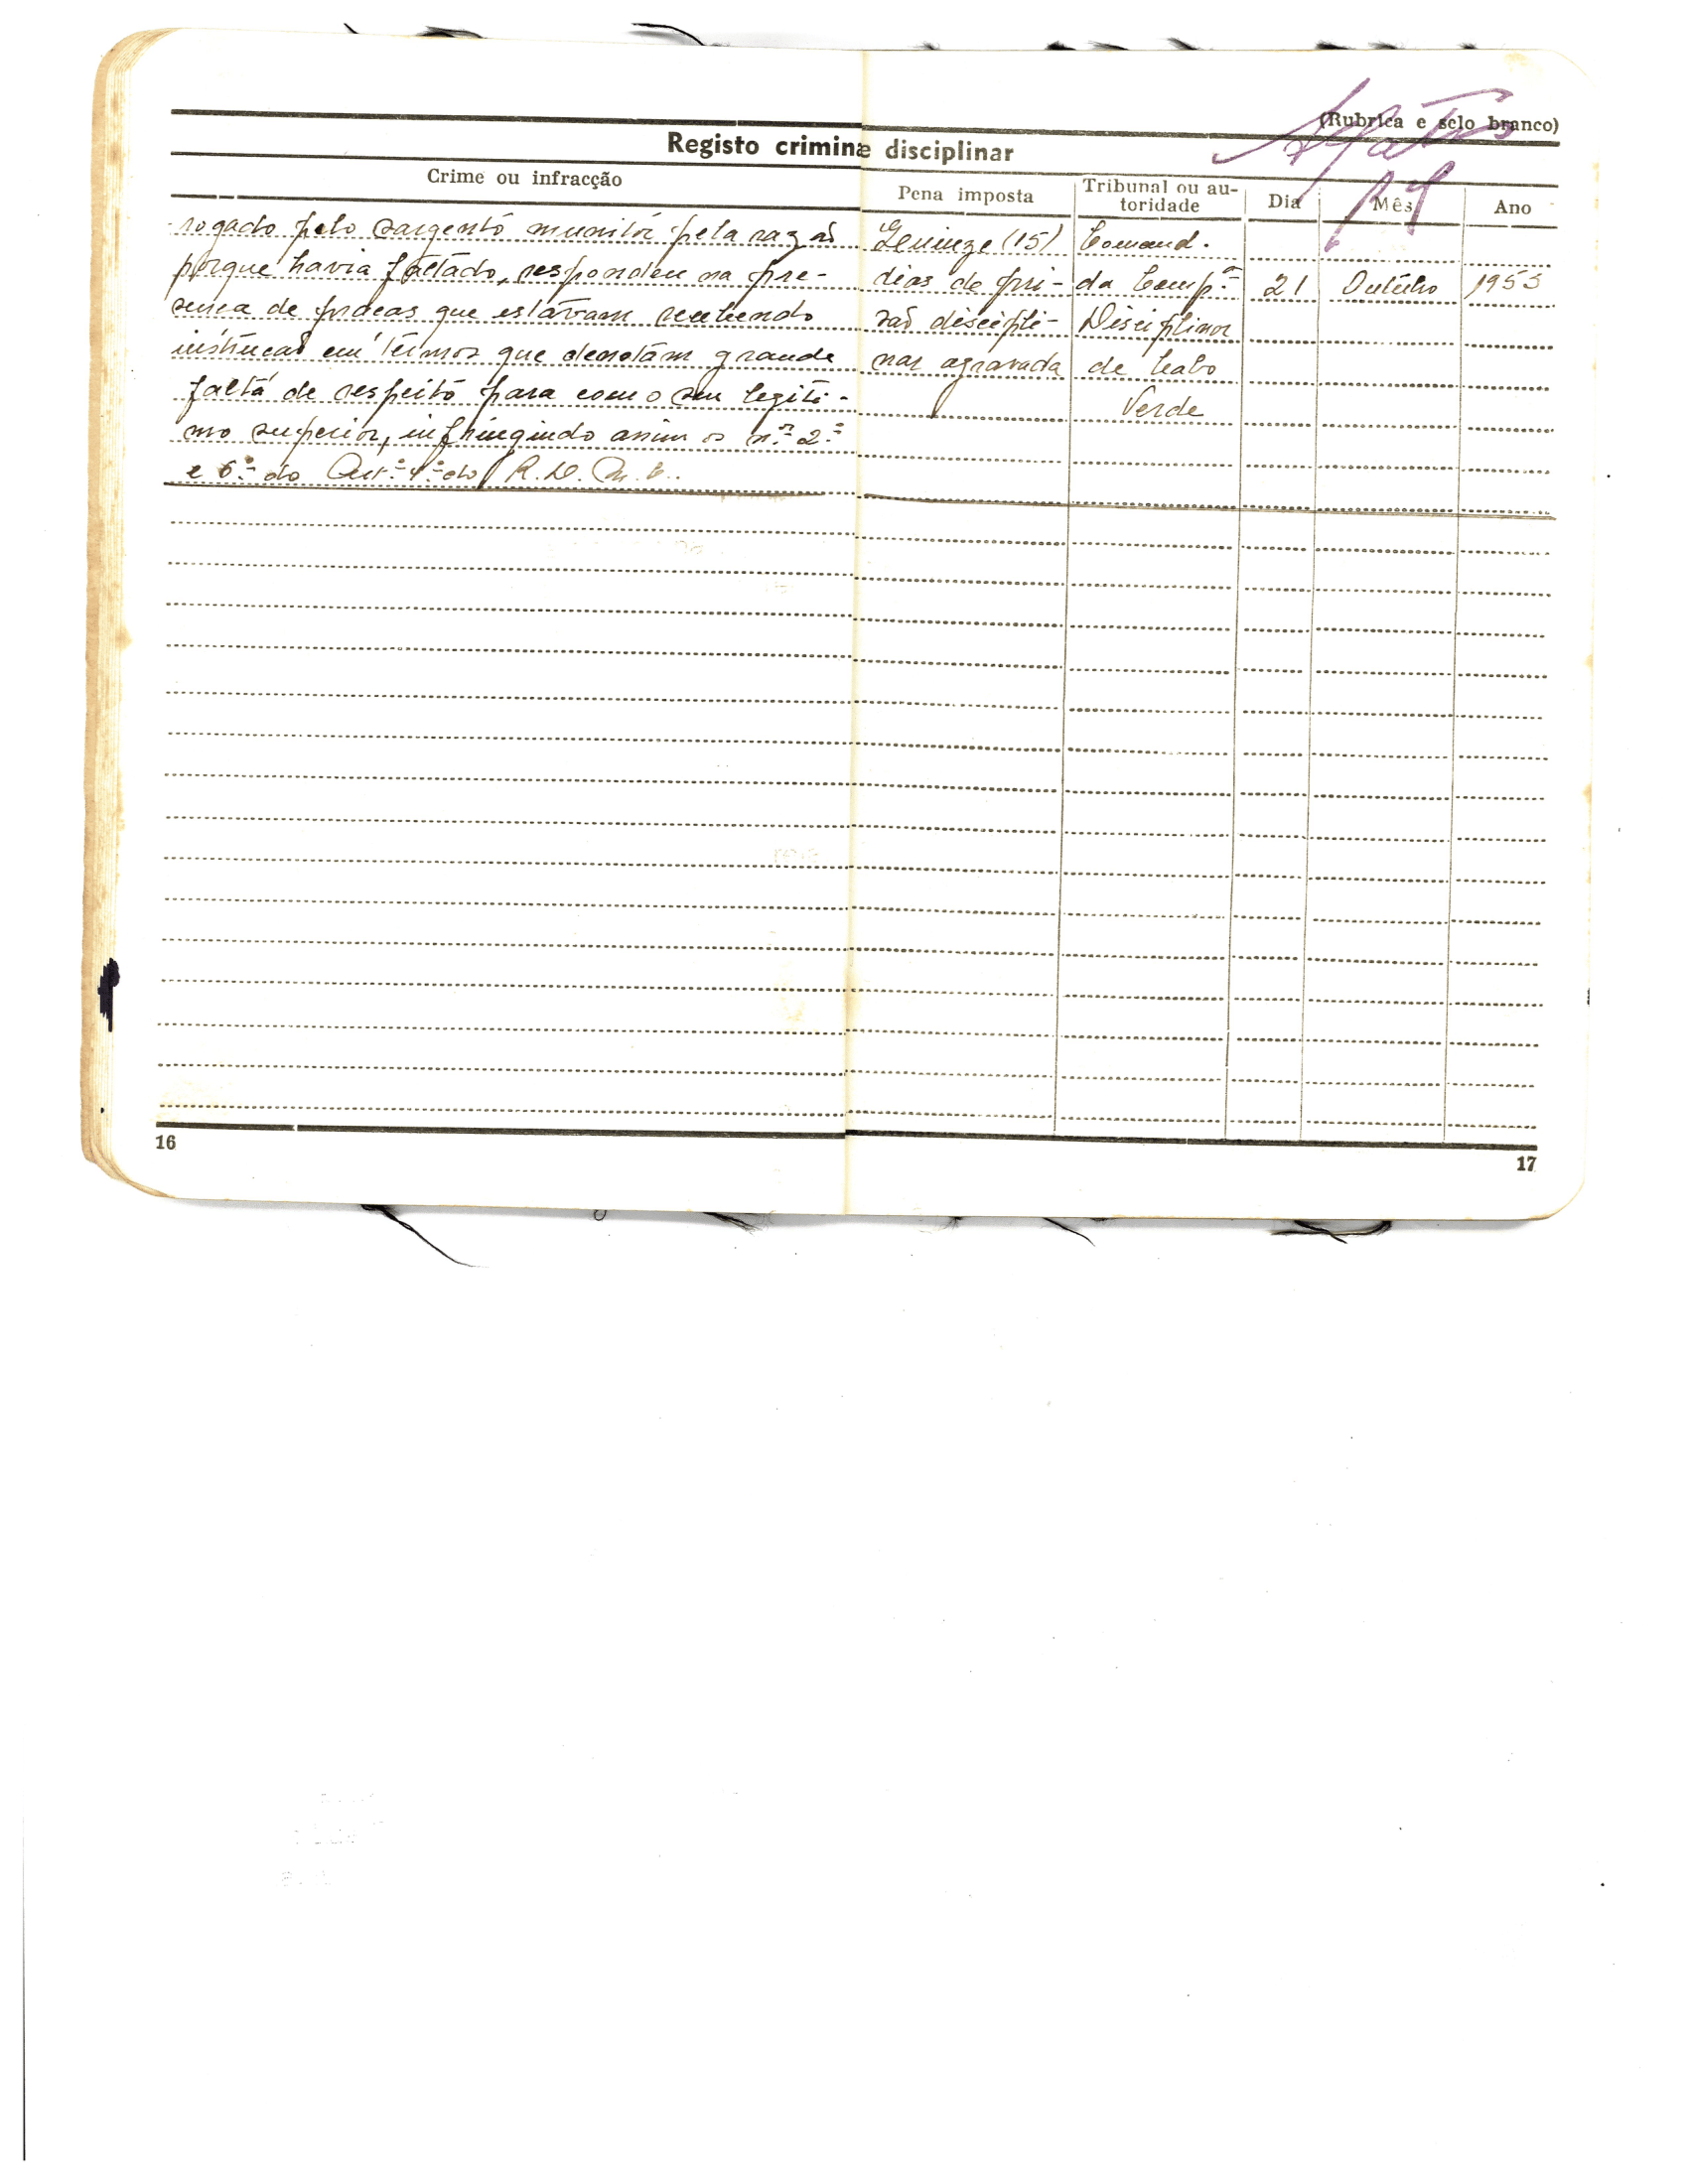 (Rubrica e selo branco)
Registo crimine disciplinar
Crime ou infracção
Pena imposta
Tribunal ou au-
toridade
Dia
Mês
Ano
rogado pelo sargento monitor pela razão
porque havia faltado, respondeu na pre-
sença de praças que estavam recebendo
instrução em termos que denotam grande
falta de respeito para com o seu legiti-
mo superior, infringindo assim os n.os 2.º
e 6.º do Art.º 4.º do R. D. M.
Quinze (15)
dias de pri-
são discipli-
nar agravada
Comand.
da Comp.ª
Disciplinar
de Cabo
Verde
21 Outubro 1953
16
17